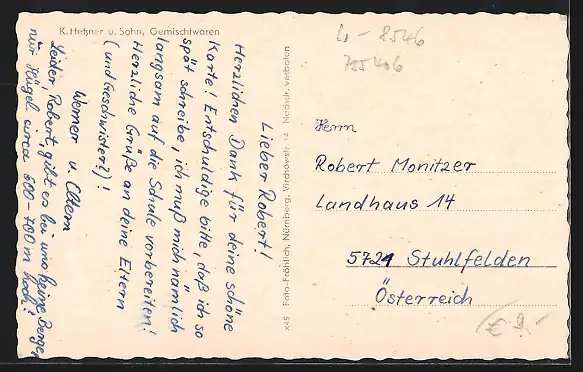 K. Hetzner u. Sohn, Gemischtwaren
Lieber Robert!
Herzlichen Dank für deine schöne
Karte! Entschuldige bitte, daß ich so
spät schreibe, ich muß mich nämlich
langsam auf die Schule vorbereiten!
Herzliche Grüße an deine Eltern
(und Geschwister?)!
Werner u. Eltern
Leider, Robert, gibt es bei uns keine Berge,
nur Hügel circa 600-700 m hoch!
x45 Foto-Fröhlich, Nürnberg, Virchowstr. 14 Nachdr. verboten
4-8546
755406
Herrn
Robert Monitzer
Landhaus 14
5721 Stuhlfelden
Österreich
€ 9.-